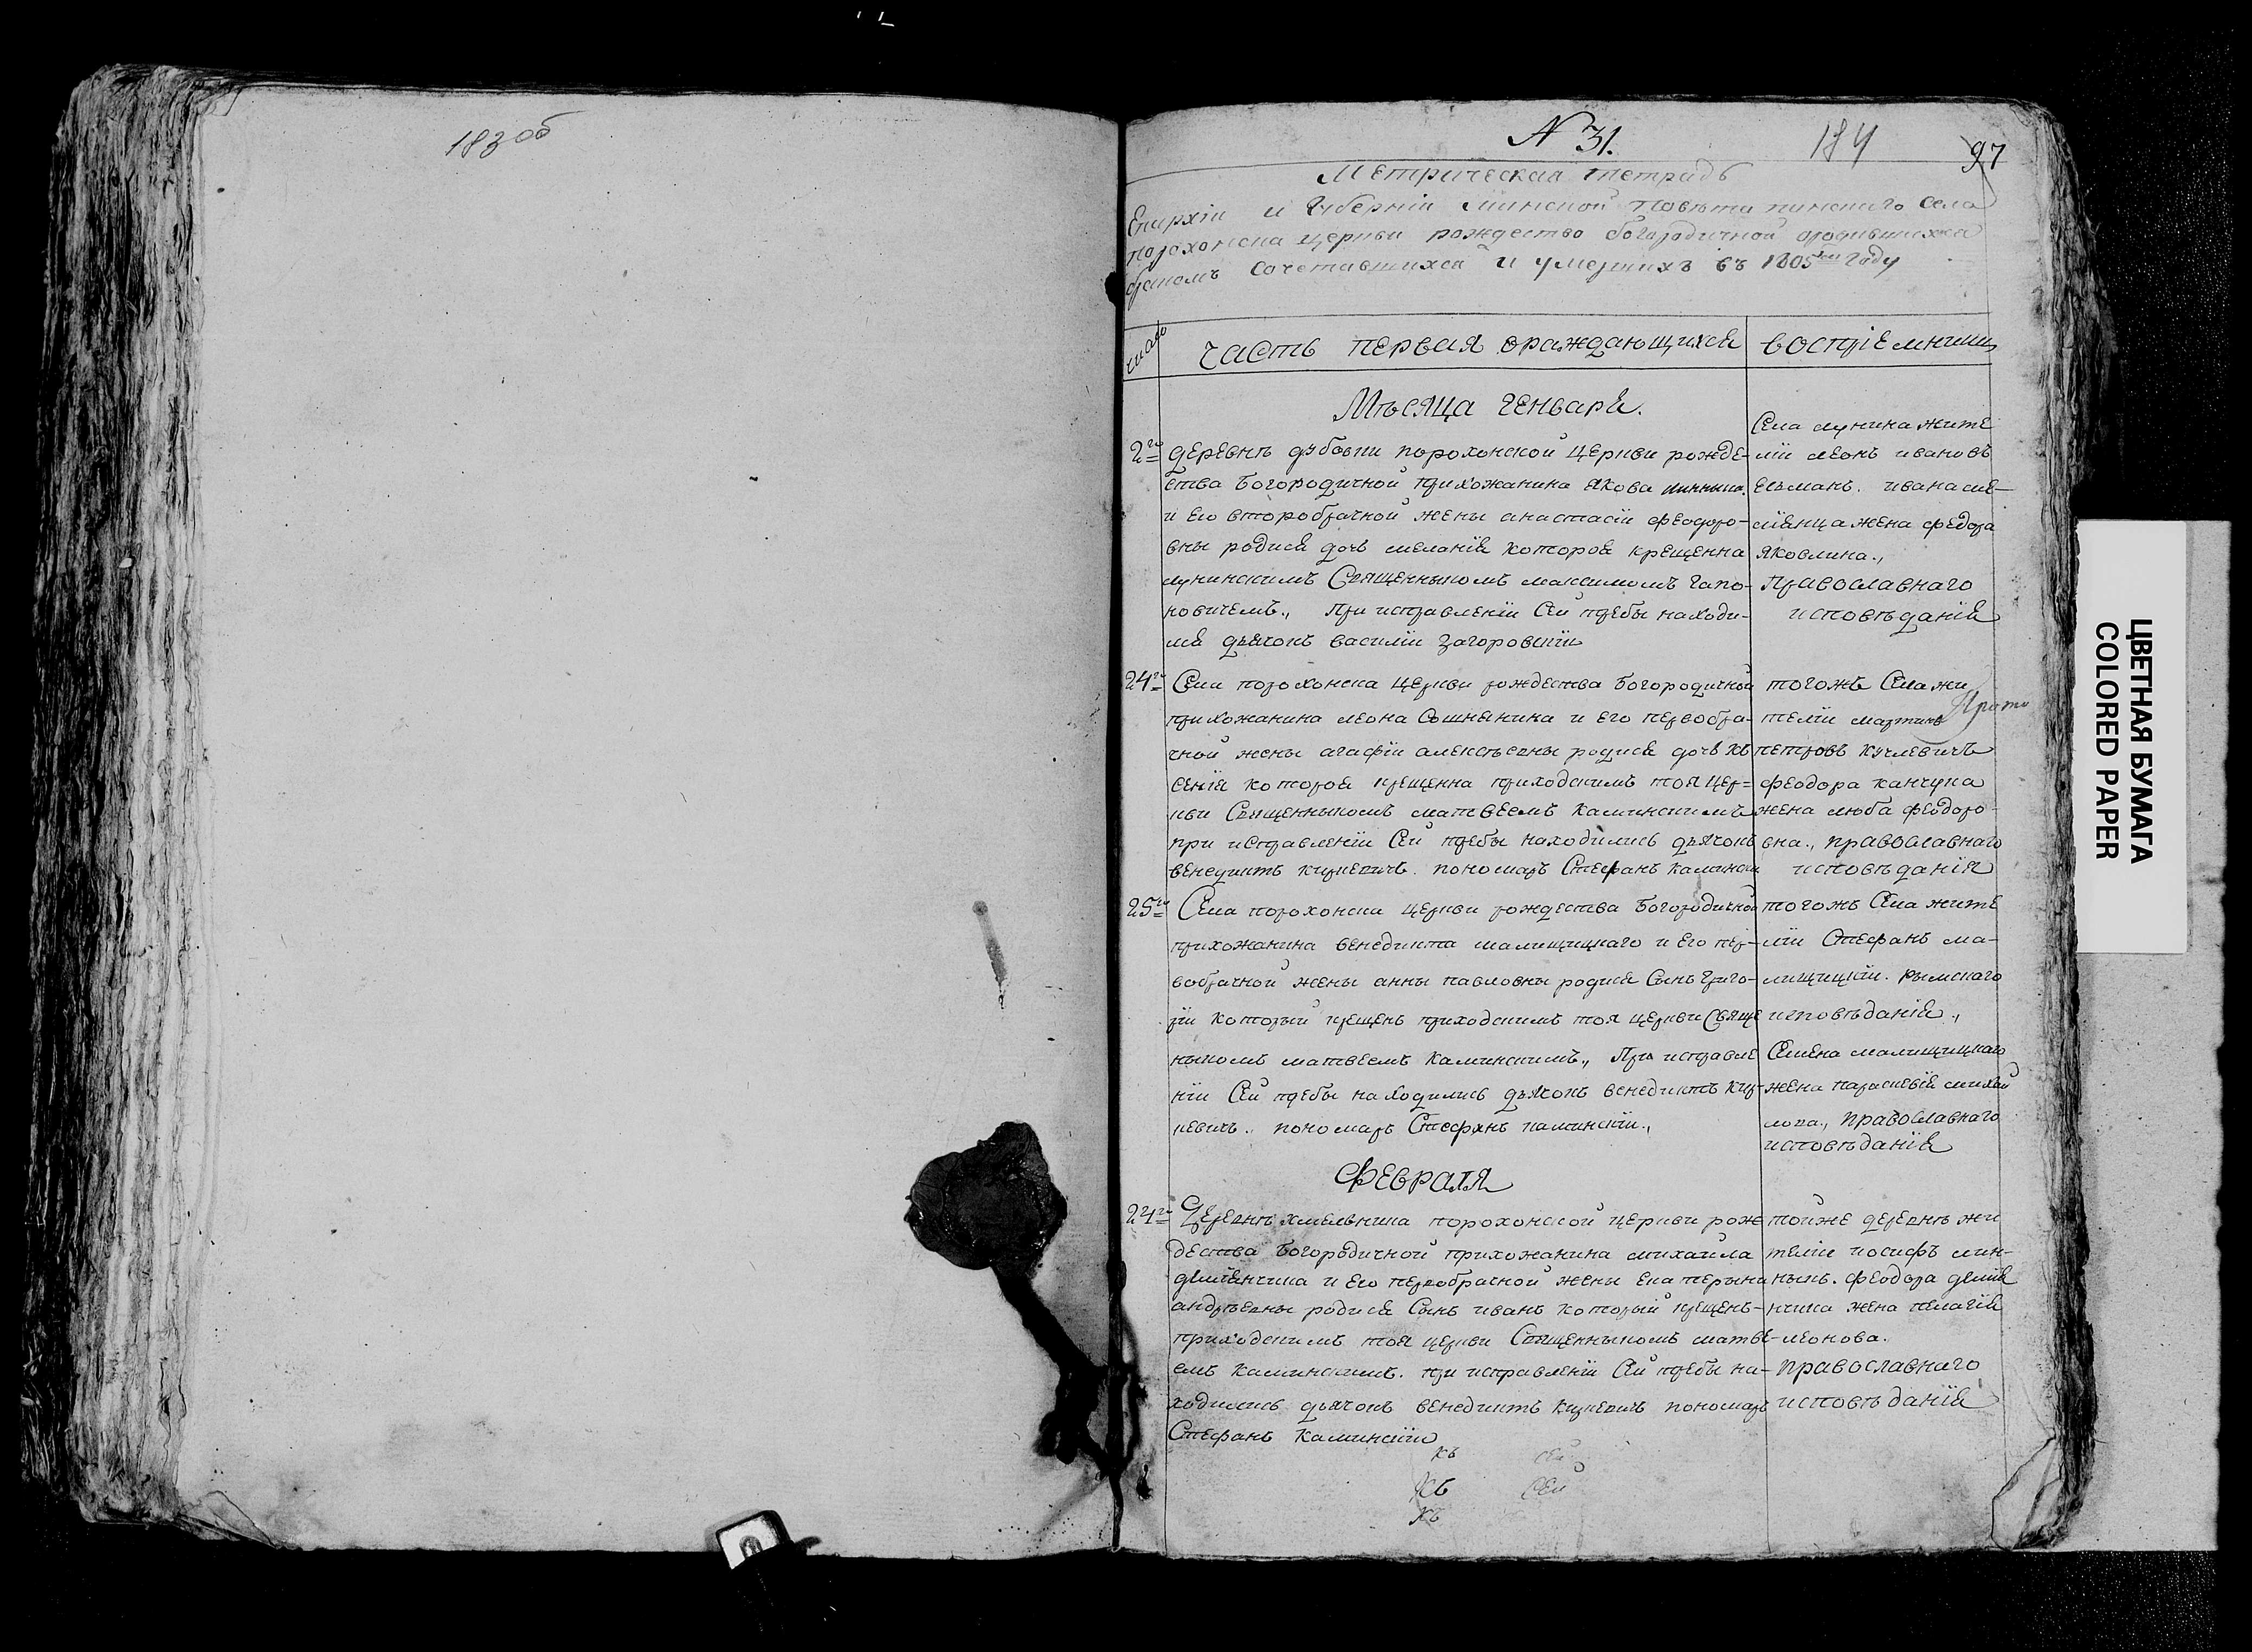 183 об
N 31.
184
97
Метрическая тетрадь
Епархіи и Губерніи Минской Повѣта пинского Села
порохонска церкви рождество богородичной ородившихся
бракомъ Сочетавшихся и умершихъ въ 1805мъ Году
число
часть первая ораждающихся
воспріемники
Мѣсяца Генваря.
2го деревнѣ дубовки порохонской церкви рожде-
ства Богородичной прихожанина якова
и его второбрачной жены анастасіи феодоро-
вны родися дочь меланія которая крещенна
лунинскимъ Священныкомъ максимомъ гапо-
новичемъ., При исправленіи Сей требы находи-
лся дьячокъ василіи Загоровскіи
Села лунина жите
ліи леонъ ивановъ
ельманъ. ивана
жена федора
яковлина.,
Православнаго
исповѣданія
24го Села порохонска Церкви рождества Богородичной
прихожанина леона Сошнянина и его первобра-
чной жены агафіи алексѣевны родися дочь Кс
сенія которая крещенна приходскимъ тоя цер-
кви Священныкомъ матвеемъ Каминскимъ
при исправленіи Сей требы находились дьячокъ
венедиктъ киркевичъ. пономаръ Стефанъ Каминскіи
тогожъ Села жи
теліи мартинъ
петровъ кучлевичъ
феодора канчука
жена люба феодоро-
вна., православнаго
исповѣданія
25го Села порохонска Церкви рождества Богородичной
прихожанина венедикта малищицкаго и Его пер-
вобрачной жены анны павловны родися Сынъ Григо-
ріи который крещенъ приходскимъ тоя церкви Свяще
ныкомъ матвеемъ Каминскимъ., При исправле
ніи Сей требы находились дьячокъ венедиктъ кир-
кевичъ.. пономаръ Стефанъ каминскіи.,
тогожъ Села жите
ліи Стефанъ ма-
лищицкіи. рымского
исповѣданія.,
Семена малищицкаго
жена параскевія михай
лова., Православнаго
исповѣданія
Февраля
24го Деревнѣ хмельника порохонской церкви рож
дества Богородичной прихожанина михаила
демянчика и Его первобрачной жены Екатерины
андрѣевны родися Сынъ иванъ который крещенъ-
приходскимъ тоя церкви Священныкомъ матве-
емъ Каминскимъ. при исправленіи Сей требы на-
ходились дьячокъ венедиктъ Киркевичъ пономаръ
Стефанъ Каминскіи
тойже деревнѣ жи
теліи иосифъ мин-
ныкъ. феодора демя
нчика жена пелагія
леонова.
православнаго
исповѣданія
къ сей
Къ сей
къ
ЦВЕТНАЯ БУМАГА
COLORED PAPER